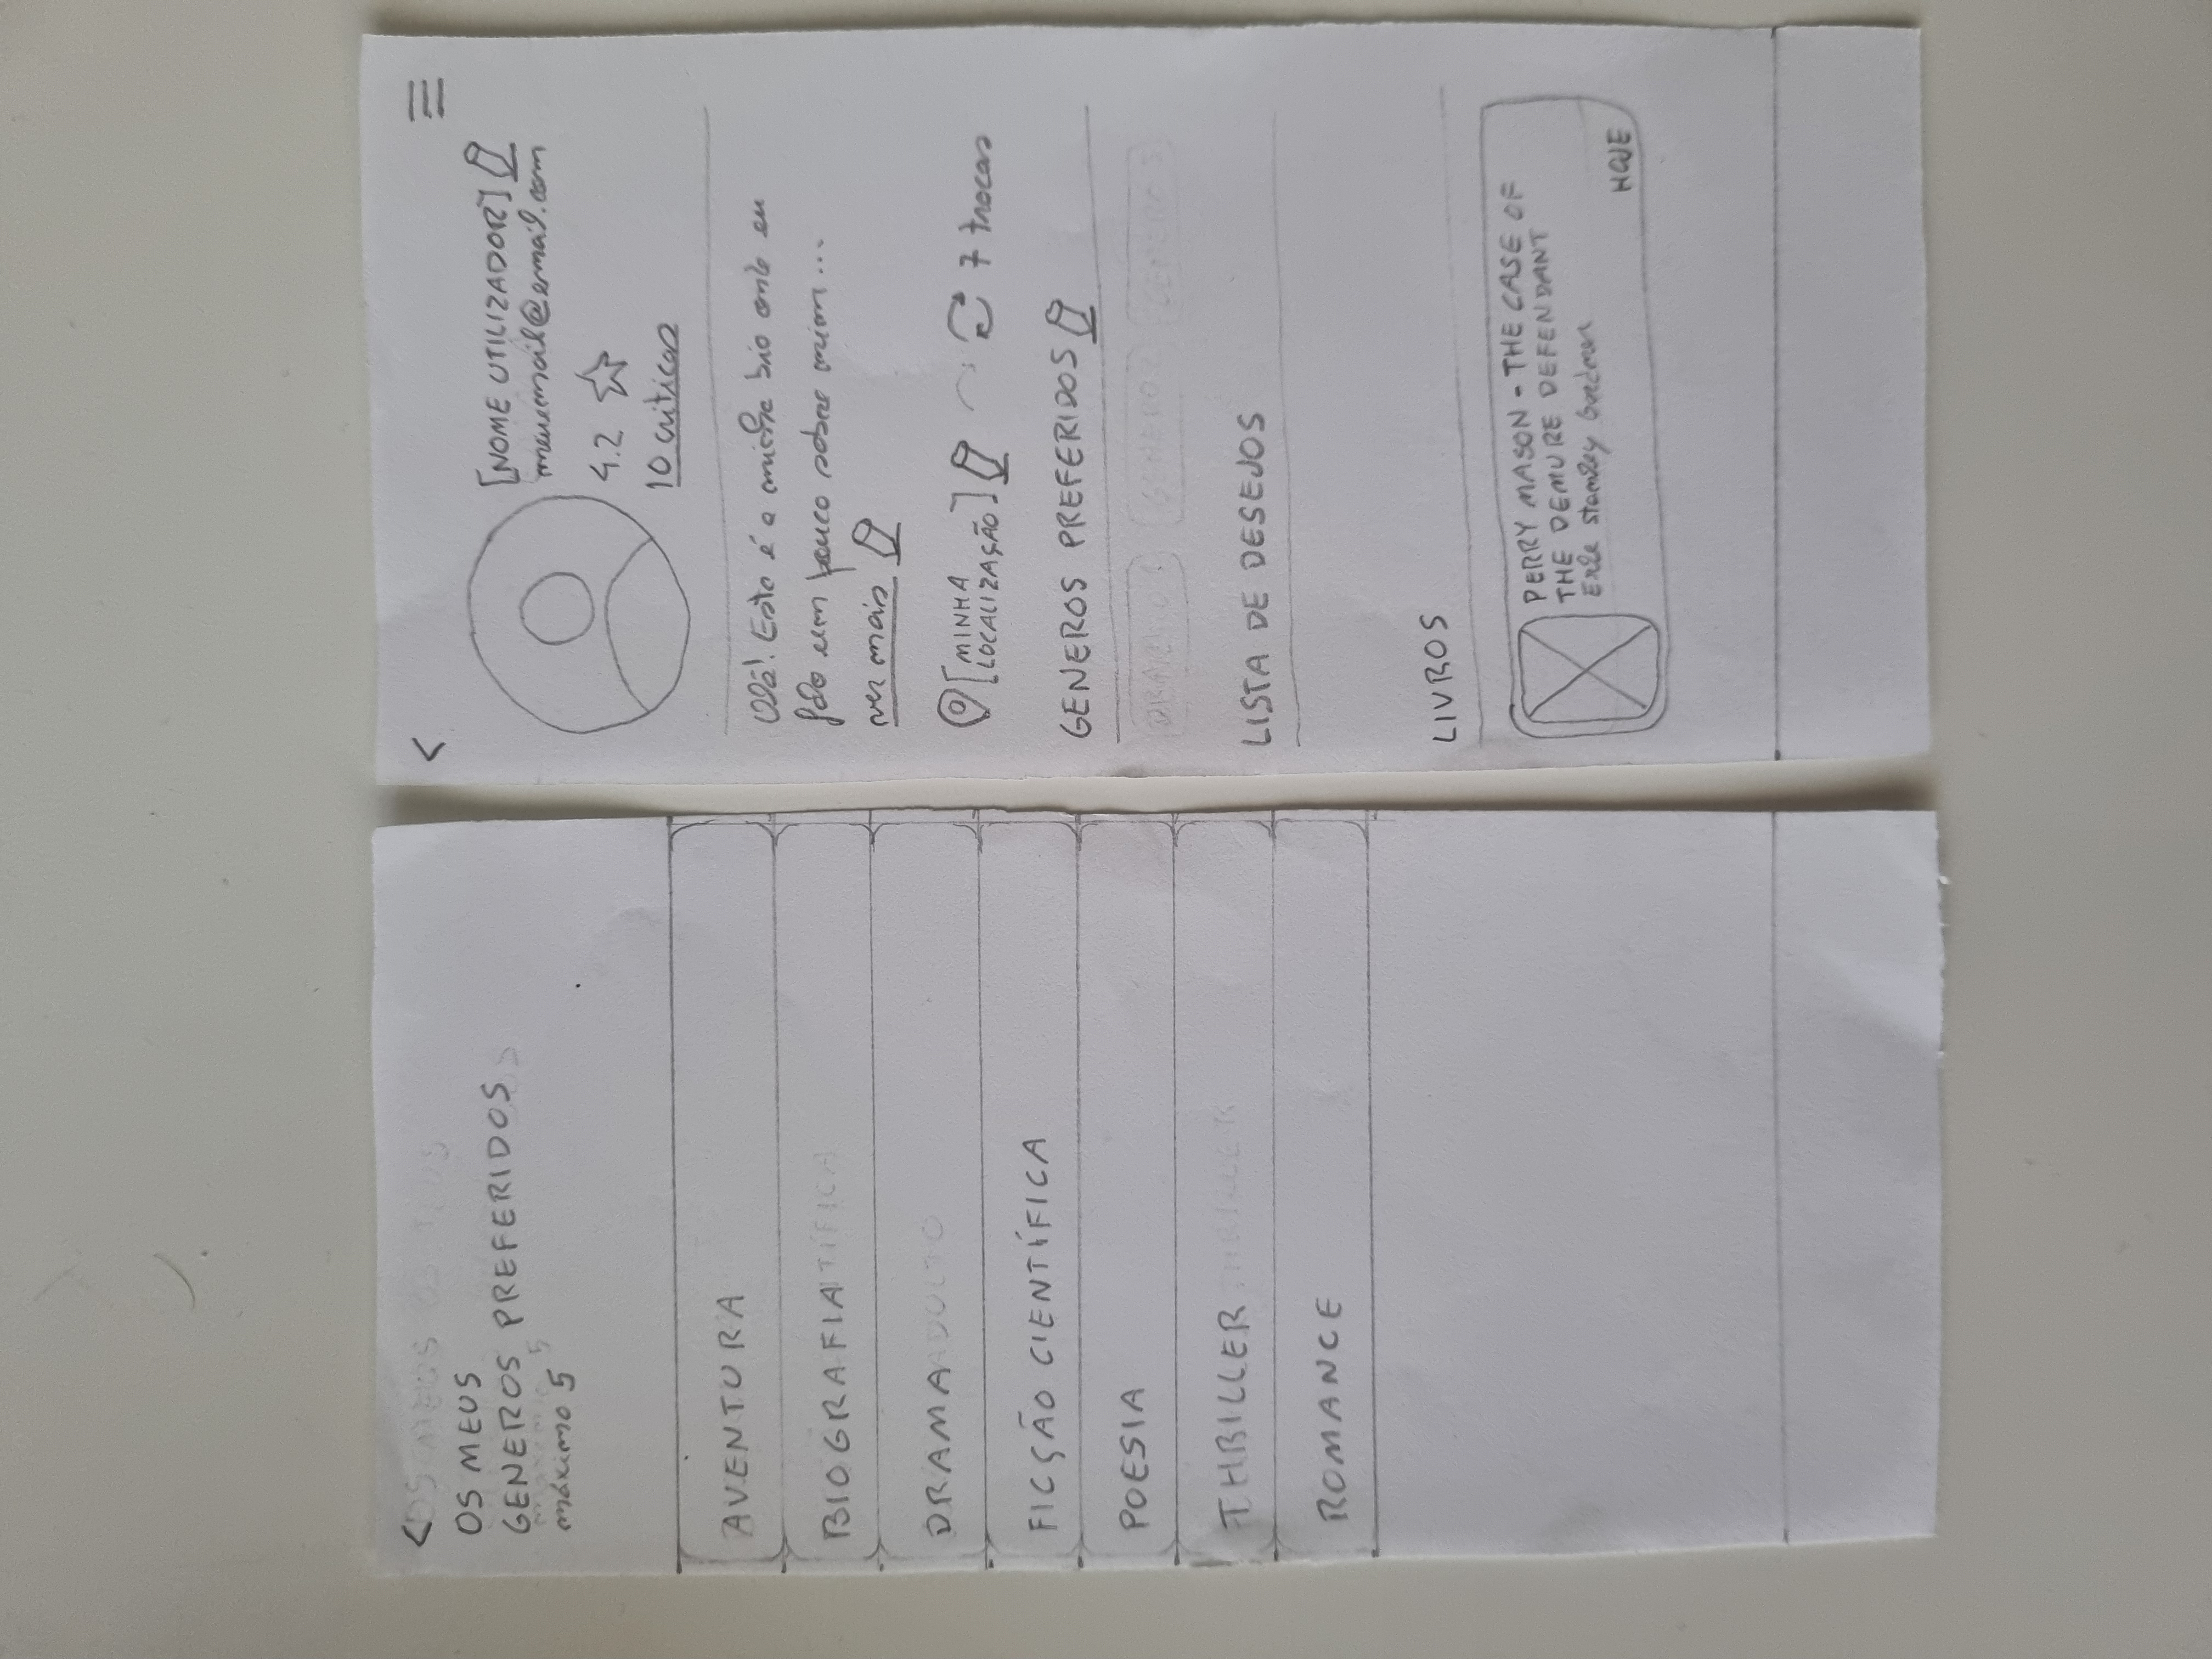 <
OS MEUS
GENEROS PREFERIDOS
máximo 5
AVENTURA
BIOGRAFIA
DRAMA
FICÇÃO CIENTÍFICA
POESIA
THRILLER
ROMANCE
<
[NOME UTILIZADOR]
meuemail@email.com
4.2
10 criticas
Olá! Esta é a minha bio onde eu
falo um pouco sobre mim...
ver mais
[MINHA
LOCALIZAÇÃO]
7 trocas
GENEROS PREFERIDOS
LISTA DE DESEJOS
LIVROS
PERRY MASON - THE CASE OF
THE DEMURE DEFENDANT
Erle Stanley Gardner
HOJE